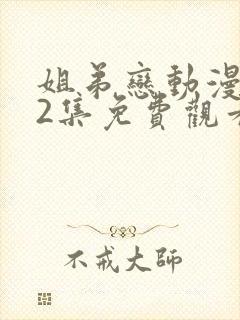 姐弟戀動漫
2集免費觀看
不戒大師